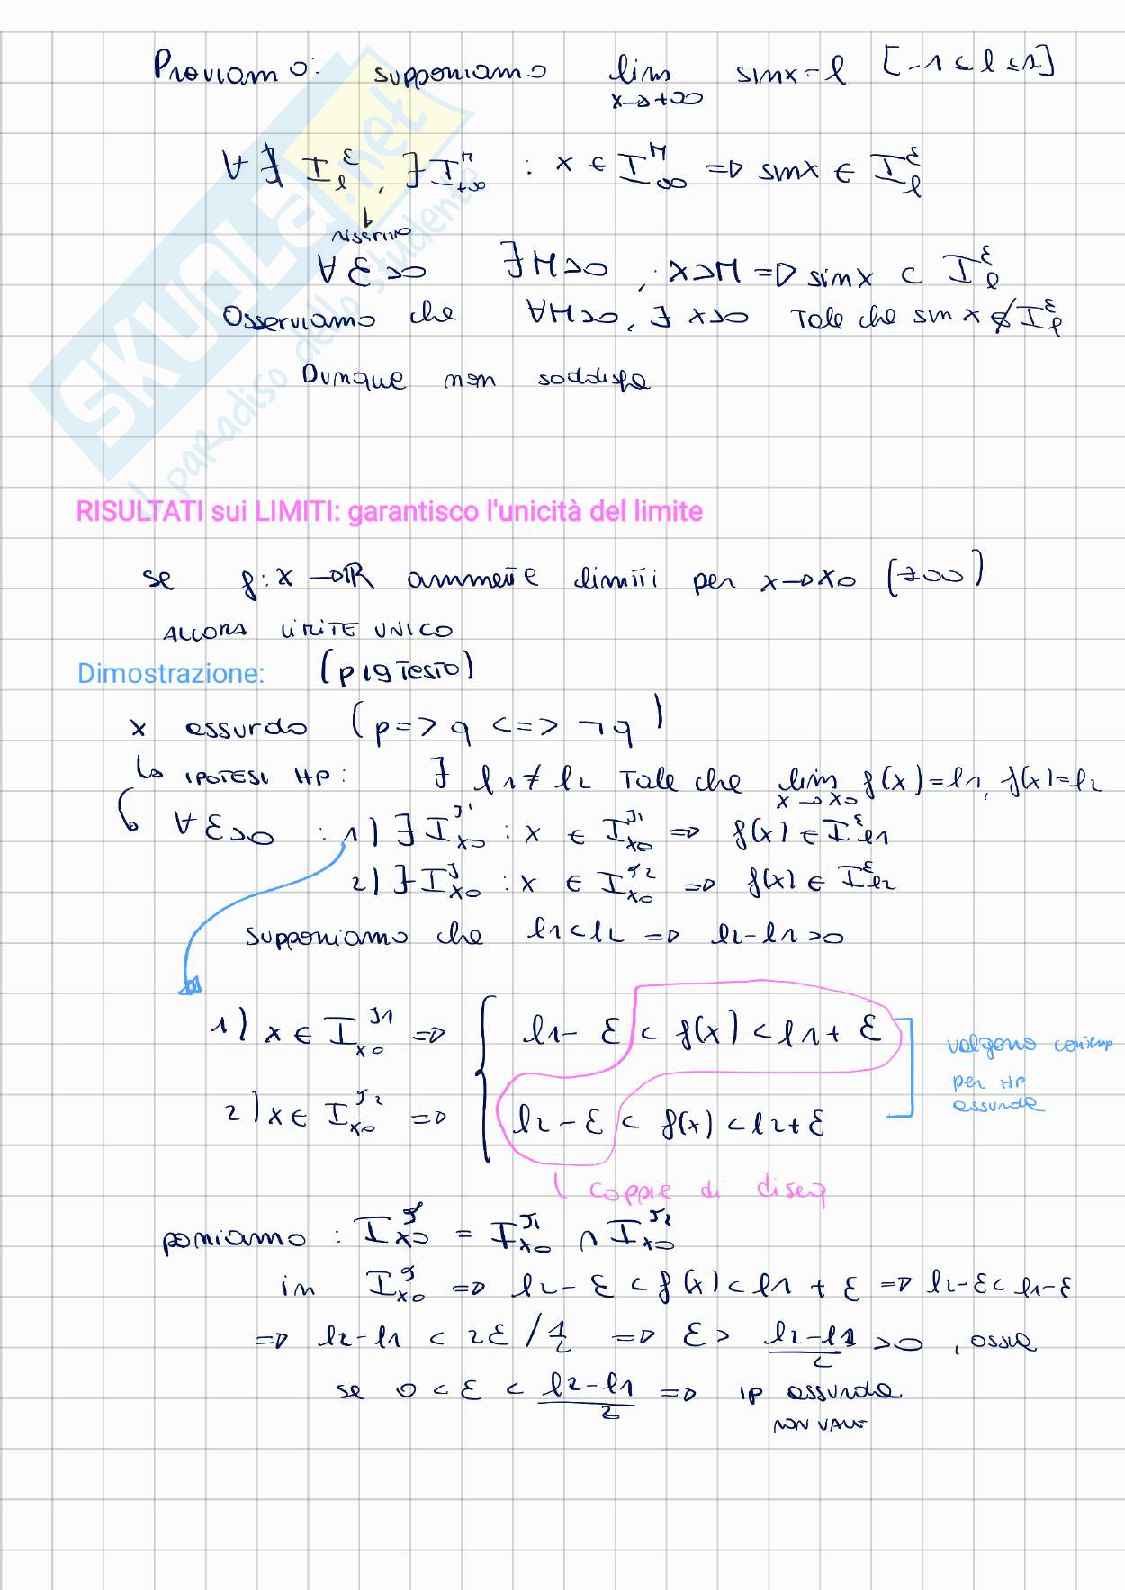 Proviamo: supponiamo lim sinx=l [-1≤l≤1]
x→+∞
∀ ∃ I_l^ε, ∃ I_{+∞}^M : x ∈ I_∞^M ⇒ sinx ∈ I_l^ε
∀ε>0 ∃M>0, :x>M ⇒ sinx ⊂ I_l^ε
Osserviamo che ∀M>0, ∃ x>0 Tale che sin x ∉ I_l^ε
Dunque non soddisfa
SKUOLA.net
il paradiso dello studente
RISULTATI sui LIMITI: garantisco l'unicità del limite
se f: X → ℝ ammette limiti per x→x0 (±∞)
ALLORA LIMITE UNICO
Dimostrazione: (p 19 TESTO)
x assurdo (p=>q <=> ¬q)
↳ IPOTESI HP: ∃ l1≠l2 Tale che lim f(x)=l1, f(x)=l2
x→x0
∀ε>0 : 1) ∃ I_{x0}^{J1} : x ∈ I_{x0}^{J1} ⇒ f(x) ∈ I_{l1}^ε
2) ∃ I_{x0}^J : x ∈ I_{x0}^{J2} ⇒ f(x) ∈ I_{l2}^ε
supponiamo che l1<l2 ⇒ l2-l1>0
1) x ∈ I_{x0}^{J1} ⇒ { l1-ε < f(x) < l1+ε
valgono contemp
per HP
assurda
2) x ∈ I_{x0}^{J2} ⇒ { l2-ε < f(x) < l2+ε
coppie di diseq
poniamo : I_{x0}^J = I_{x0}^{J1} ∩ I_{x0}^{J2}
in I_{x0}^J ⇒ l2-ε < f(x) < l1+ε ⇒ l2-ε < l1-ε
⇒ l2-l1 < 2ε / 1/2 ⇒ ε > (l2-l1)/2 >0, ossia
se 0<ε< (l2-l1)/2 ⇒ ip assurda
NON VALE